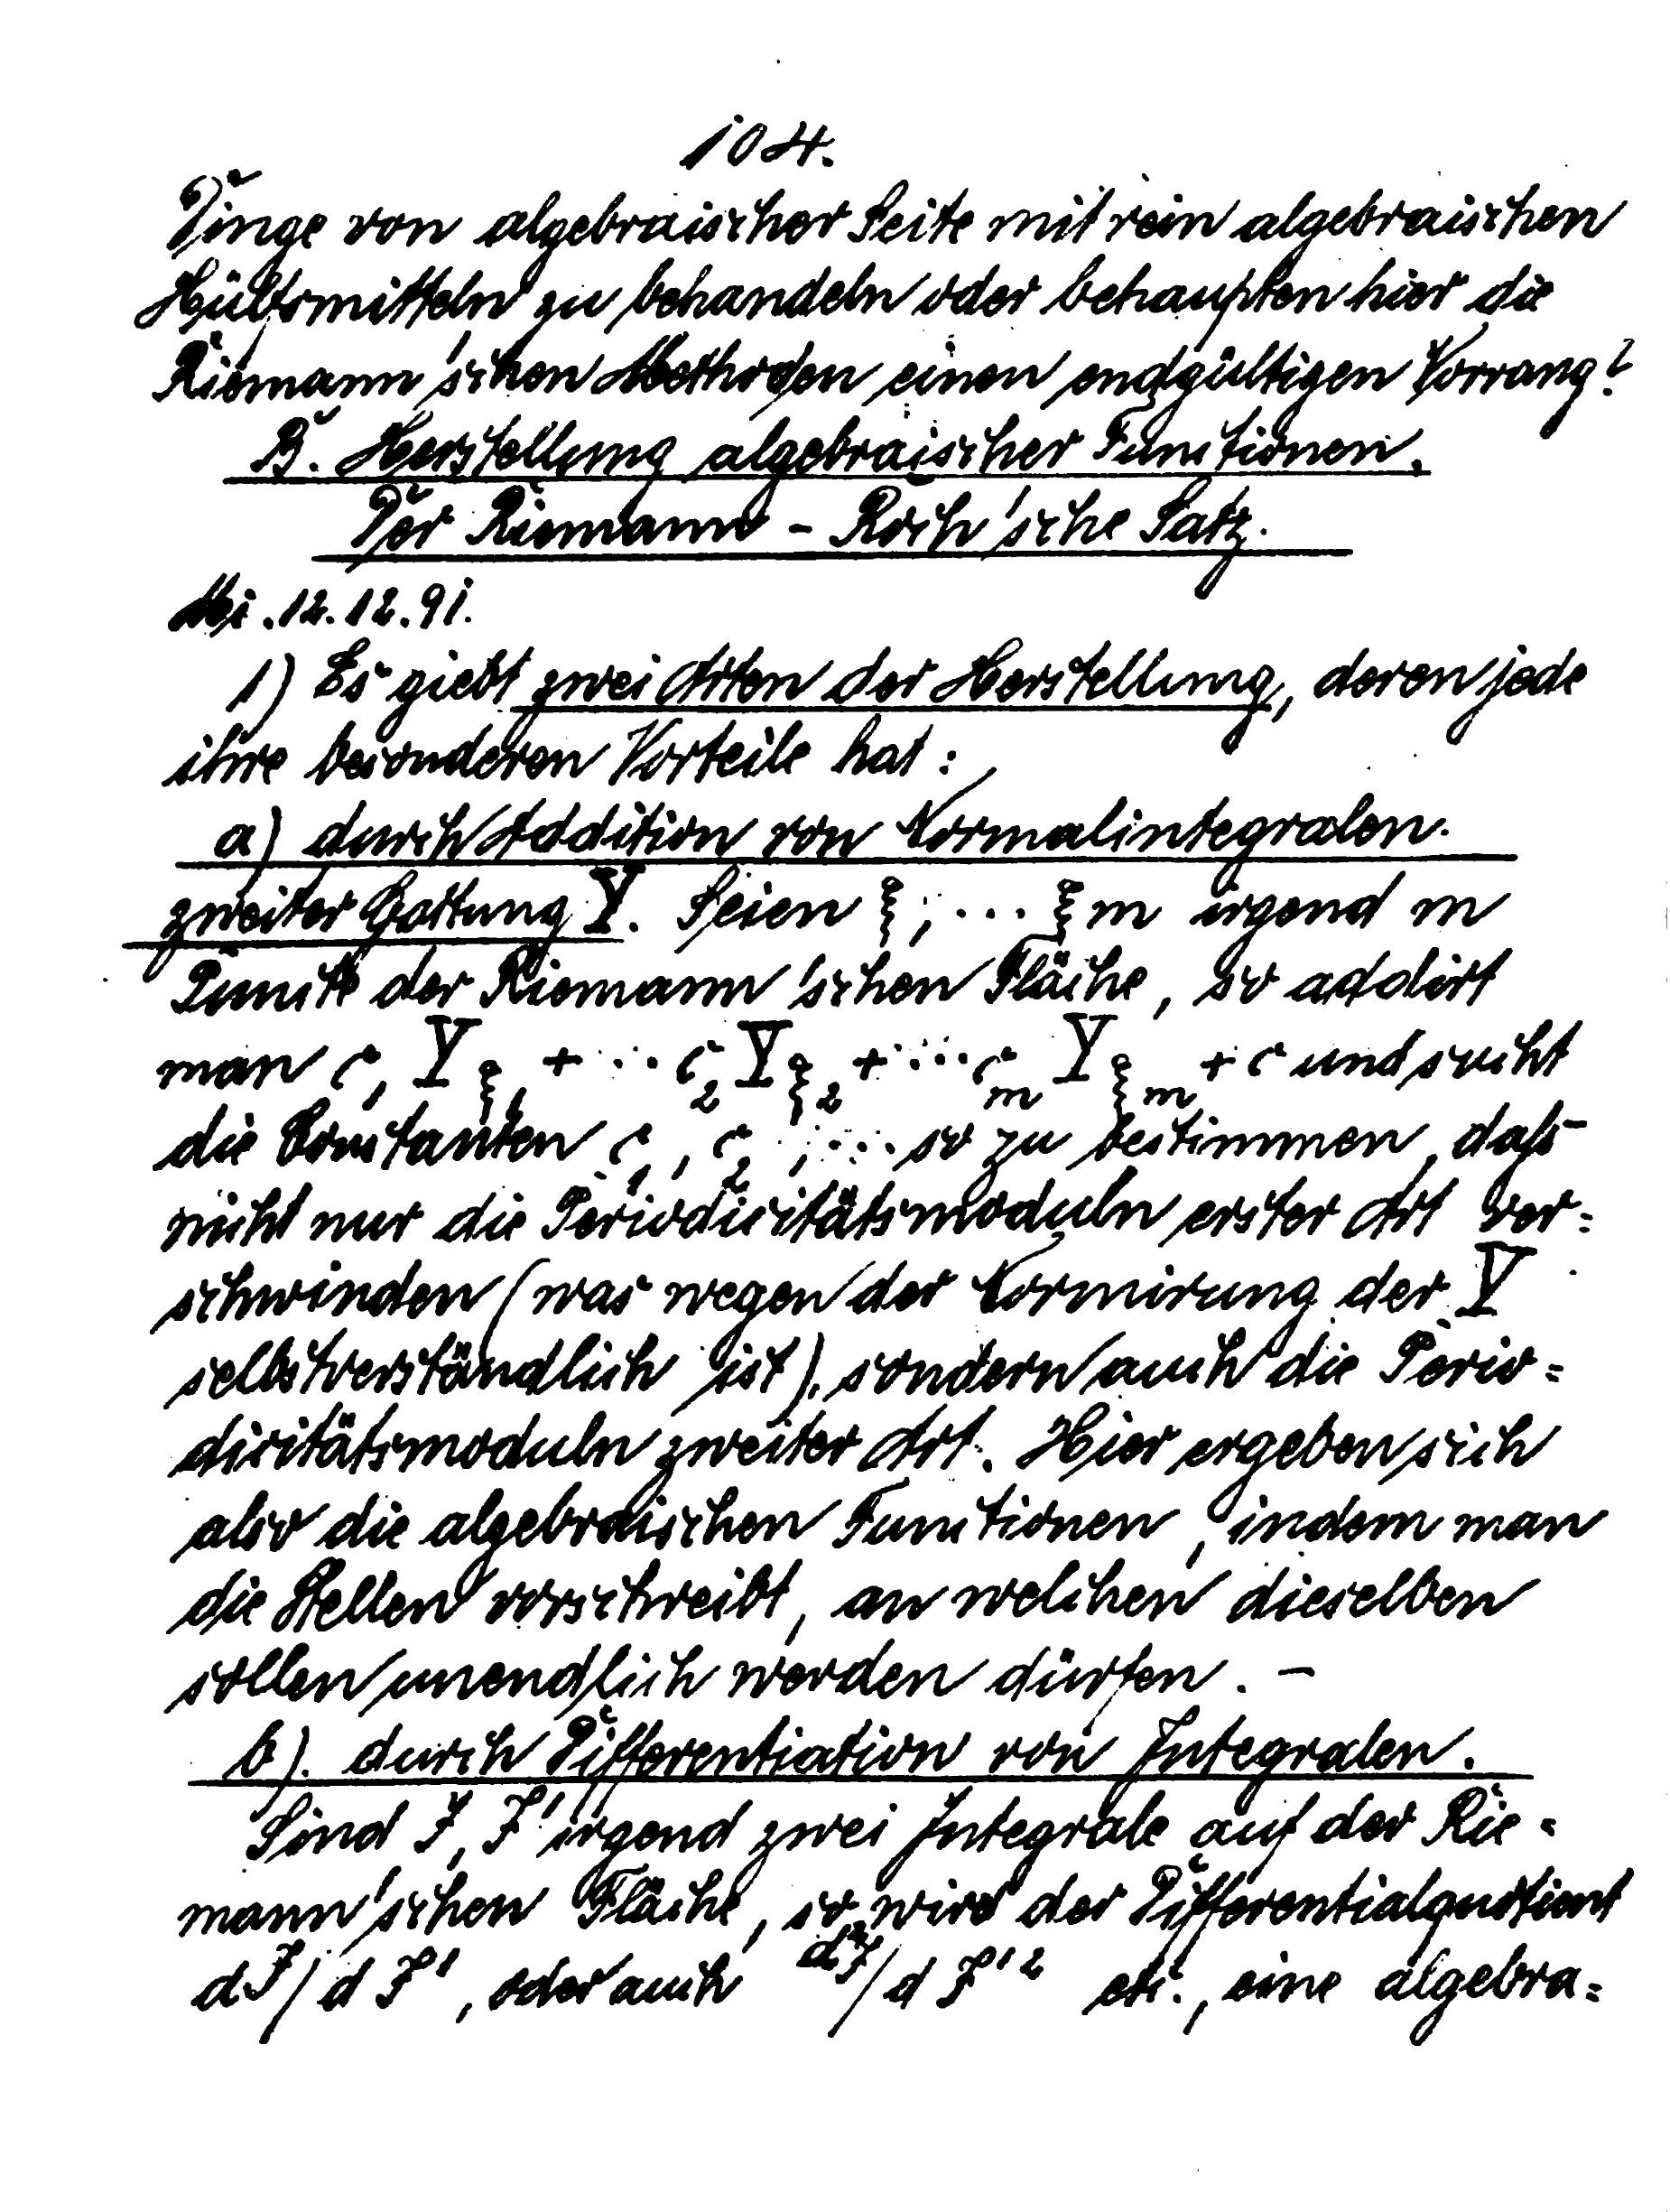 104.
Dinge von algebraischer Seite mit rein algebraischen
Hülfsmitteln zu behandeln oder behaupten hier die
Riemann'schen Methoden einen endgültigen Vorrang?
B. Herstellung algebraischer Functionen.
Der Riemann - Roch'sche Satz.
Mi. 12. 12. 91.
1) Es giebt zwei Arten der Herstellung, deren jede
ihre besonderen Vorteile hat:
a) durch Addition von Normalintegralen
zweiter Gattung Y. Seien ξ, ... ξm irgend m
Puncte der Riemann'schen Fläche, so addirt
man c₁ Y_ξ₁ + ... c₂ Y_ξ₂ + ... c_m Y_ξ_m + c und sucht
die Constanten c₁, c₂, ... so zu bestimmen, daß
nicht nur die Periodicitätsmoduln erster Art ver=
schwinden (was wegen der Normirung der Y
selbstverständlich ist), sondern auch die Perio=
dicitätsmoduln zweiter Art. Hier ergeben sich
also die algebraischen Functionen, indem man
die Stellen vorschreibt, an welchen dieselben
sollen unendlich werden dürfen. —
b). durch Differentiation von Integralen.
Sind J, J' irgend zwei Integrale auf der Rie=
mann'schen Fläche, so wird der Differentialquotient
dJ/dJ', oder auch d²J/dJ'² etc., eine algebra=